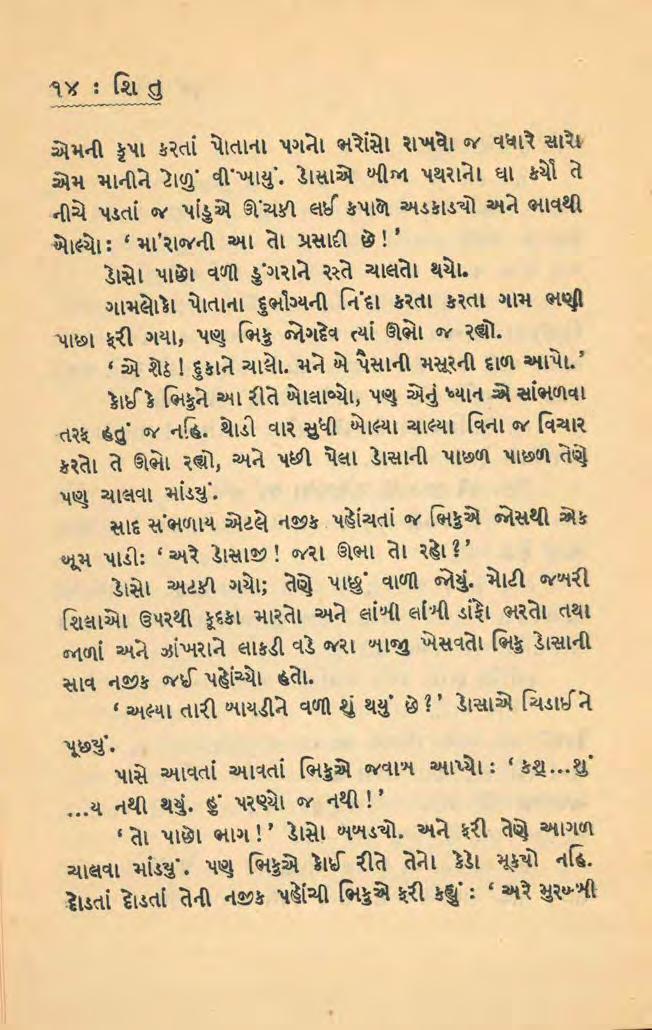 ૧૪ : શિ તુ
એમની કૃપા કરતાં પોતાના પગનો ભરોંસો રાખવો જ વધારે સારો
એમ માનીને ટોળું વીંખાયું. ડોસાએ બીજા પથરાનો ઘા કર્યો તે
નીચે પડતાં જ પાંડુએ ઊંચકી લઈ કપાળે અડકાડ્યો અને ભાવથી
બોલ્યો : ‘ મા’રાજની આ તો પ્રસાદી છે ! ’
ડોસો પાછો વળી ડુંગરાને રસ્તે ચાલતો થયો.
ગામલોકો પોતાના દુર્ભાગ્યની નિંદા કરતા કરતા ગામ ભણી
પાછા ફરી ગયા, પણ ભિકુ જોગદેવ ત્યાં ઊભો જ રહ્યો.
‘ એ શેઠ ! દુકાને ચાલો. મને બે પૈસાની મસૂરની દાળ આપો.’
કોઈકે ભિકુને આ રીતે બોલાવ્યો, પણ એનું ધ્યાન એ સાંભળવા
તરફ હતું જ નહિ. થોડી વાર સુધી બોલ્યા ચાલ્યા વિના જ વિચાર
કરતો તે ઊભો રહ્યો, અને પછી પેલા ડોસાની પાછળ પાછળ તેણે
પણ ચાલવા માંડયું.
સાદ સંભળાય એટલે નજીક પહોંચતાં જ ભિકુએ જોસથી એક
બૂમ પાડી: ‘ અરે ડોસાજી ! જરા ઊભા તો રહો ? ’
ડોસો અટકી ગયો; તેણે પાછું વાળી જોયું. મોટી જબરી
શિલાઓ ઉપરથી કૂદકા મારતો અને લાંબી લાંબી ડાંફો ભરતો તથા
જાળાં અને ઝાંખરાને લાકડી વડે જરા બાજુ ખેસવતો ભિકુ ડોસાની
સાવ નજીક જઈ પહોંચ્યો હતો.
‘ અલ્યા તારી બાયડીને વળી શું થયું છે ? ’ ડોસાએ ચિડાઈને
પૂછયું.
પાસે આવતાં આવતાં ભિકુએ જવાબ આપ્યો : ‘ કશ...શું
...ય નથી થયું. હું પરણ્યો જ નથી ! ’
‘ તો પાછો ભાગ ! ’ ડોસો બબડ્યો. અને ફરી તેણે આગળ
ચાલવા માંડયું. પણ ભિકુએ કોઈ રીતે તેનો કેડો મૂક્યો નહિ.
દોડતાં દોડતાં તેની નજીક પહોંચી ભિકુએ ફરી કહ્યું : ‘ અરે મુરબ્બી